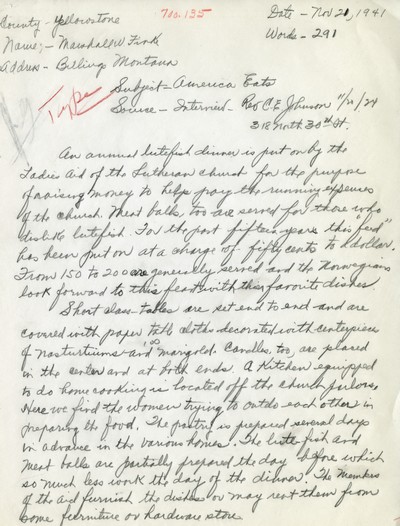 County - Yellowstone
700.135
Date - Nov 21, 1941
Name: - Marshall W Fink
Words - 291
Address - Billings Montana
Type
Subject - America Eats
Source - Interview - Rev C.E. Johnson 11/21/
318 North 30th St.
An annual lutefish dinner is put on by the
Ladies Aid of the Lutheran church for the purpose
of raising money to help pay the running expenses
of the church. Meat balls, too are served for those who
dislike lutefish. For the past fifteen years this "feed"
has been put on at a charge of fifty cents to 1 dollar.
From 150 to 200 are generally served and the Norwegians
look forward to this feast with this favorite dishes.
Short tables are set end to end and are
covered with paper table cloths decorated with centerpiece
of nasturtiums and marigolds. Candles, too, are placed
in the center and at both ends. A kitchen equipped
to do home cooking is located off the church parlors.
Here we find the women trying to outdo each other in
preparing the food. The pastry is prepared several days
in advance in the various homes. The lute fish and
meat balls are partially prepared the day before which
so much less work the day of the dinner. The members
of the aid furnish the dishes or may rent them from
some furniture or hardware store